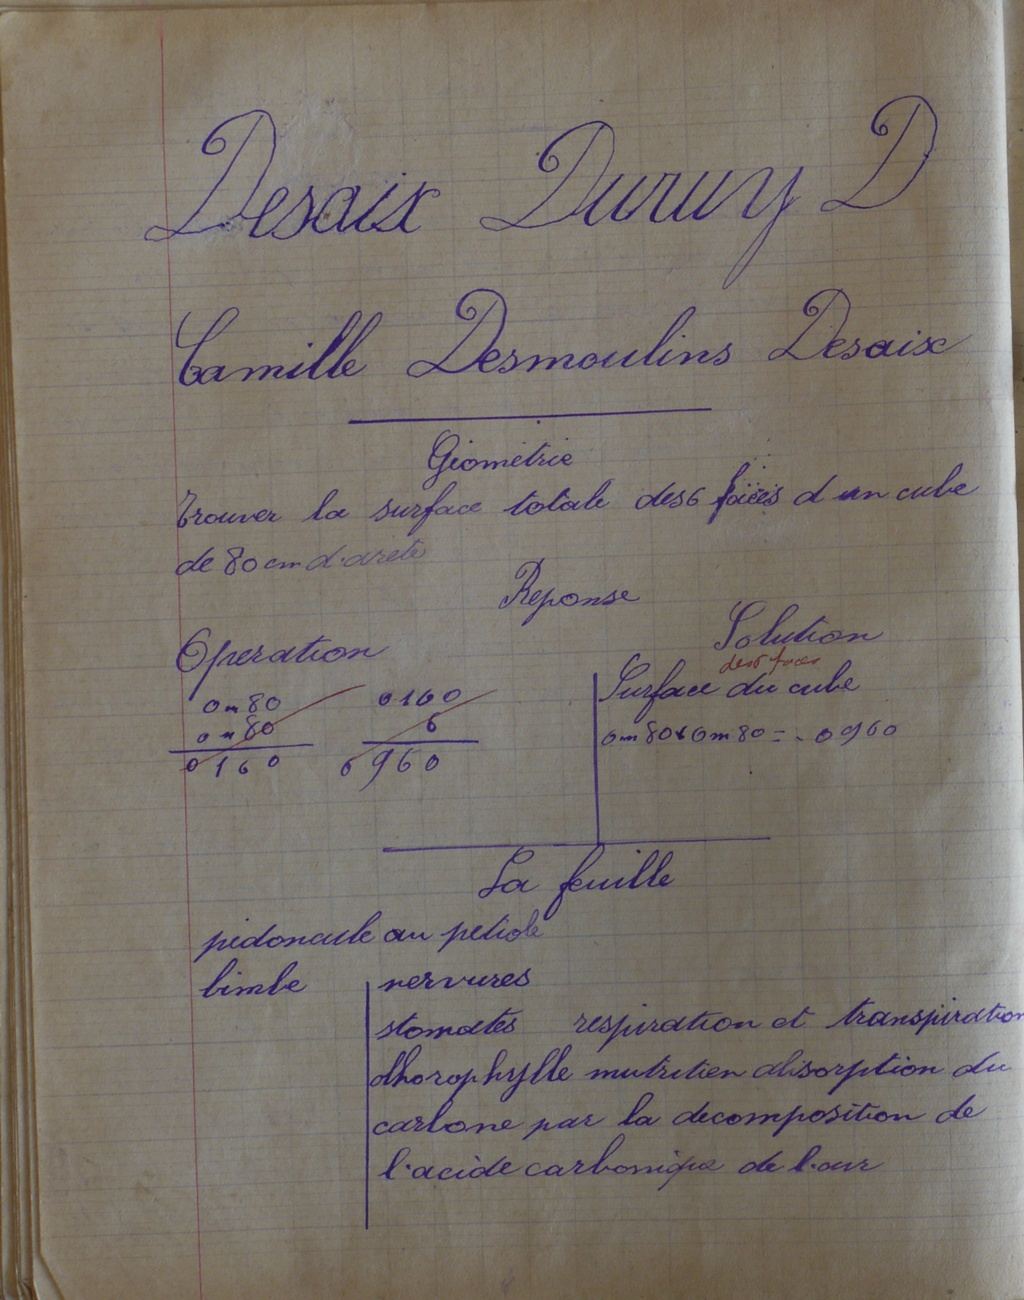 Desaix Duruy D
Camille Desmoulins Desaix
Géométrie
Trouver la surface totale des 6 faces d'un cube
de 80 cm d'arete
Reponse
Operation
Solution
des 6 faces
0m80
0160
Surface du cube
0m80
6
0m80 x 0m80 = 0960
0160
6960
La feuille
pedoncule ou petiole
limbe
nervures
stomates respiration et transpiration
chorophylle nutrition absorption du
carbone par la decomposition de
l'acide carbonique de l'air